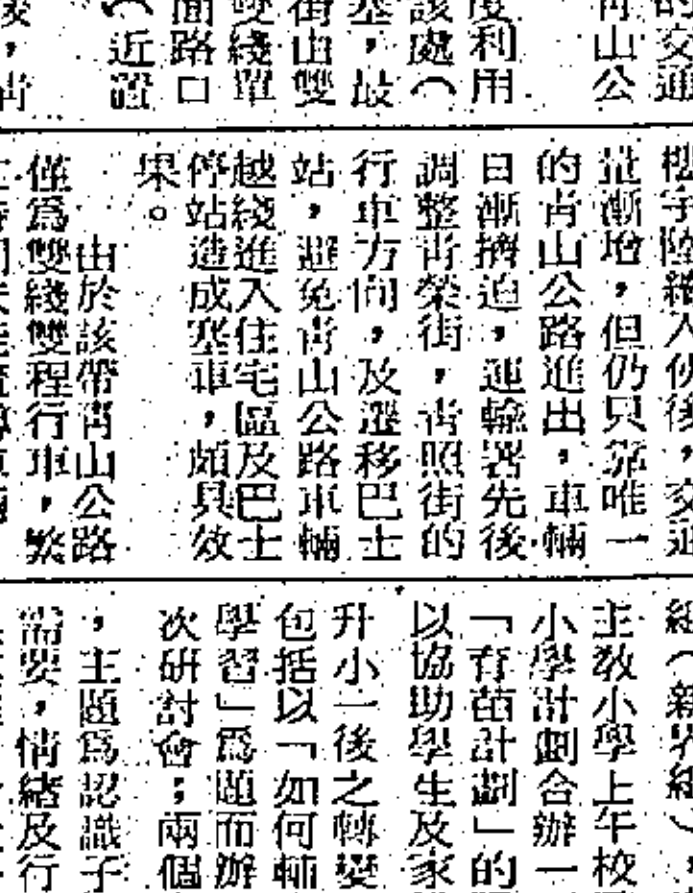 的交通
青山公
度利用
該處（
塞，最
街由雙
雙綫單
面路口
（近置
樓宇陸續入伙後，交通
量漸增，但仍只靠唯一
的青山公路進出，車輛
日漸擠迫，運輸署先後
調整青榮街，青照街的
行車方向，及遷移巴士
站，避免青山公路車輛
越綫進入住宅區及巴士
停站造成塞車，頗具效
果。
由於該帶青山公路
僅爲雙綫雙程行車，繁
組（新界組），
主教小學上午校
小學計劃合辦一
「育苗計劃」的
以協助學生及家
升小一後之轉變
包括以「如何輔
學習」爲題而辦
次研討會；兩個
，主題爲認識子
需要，情緒及行